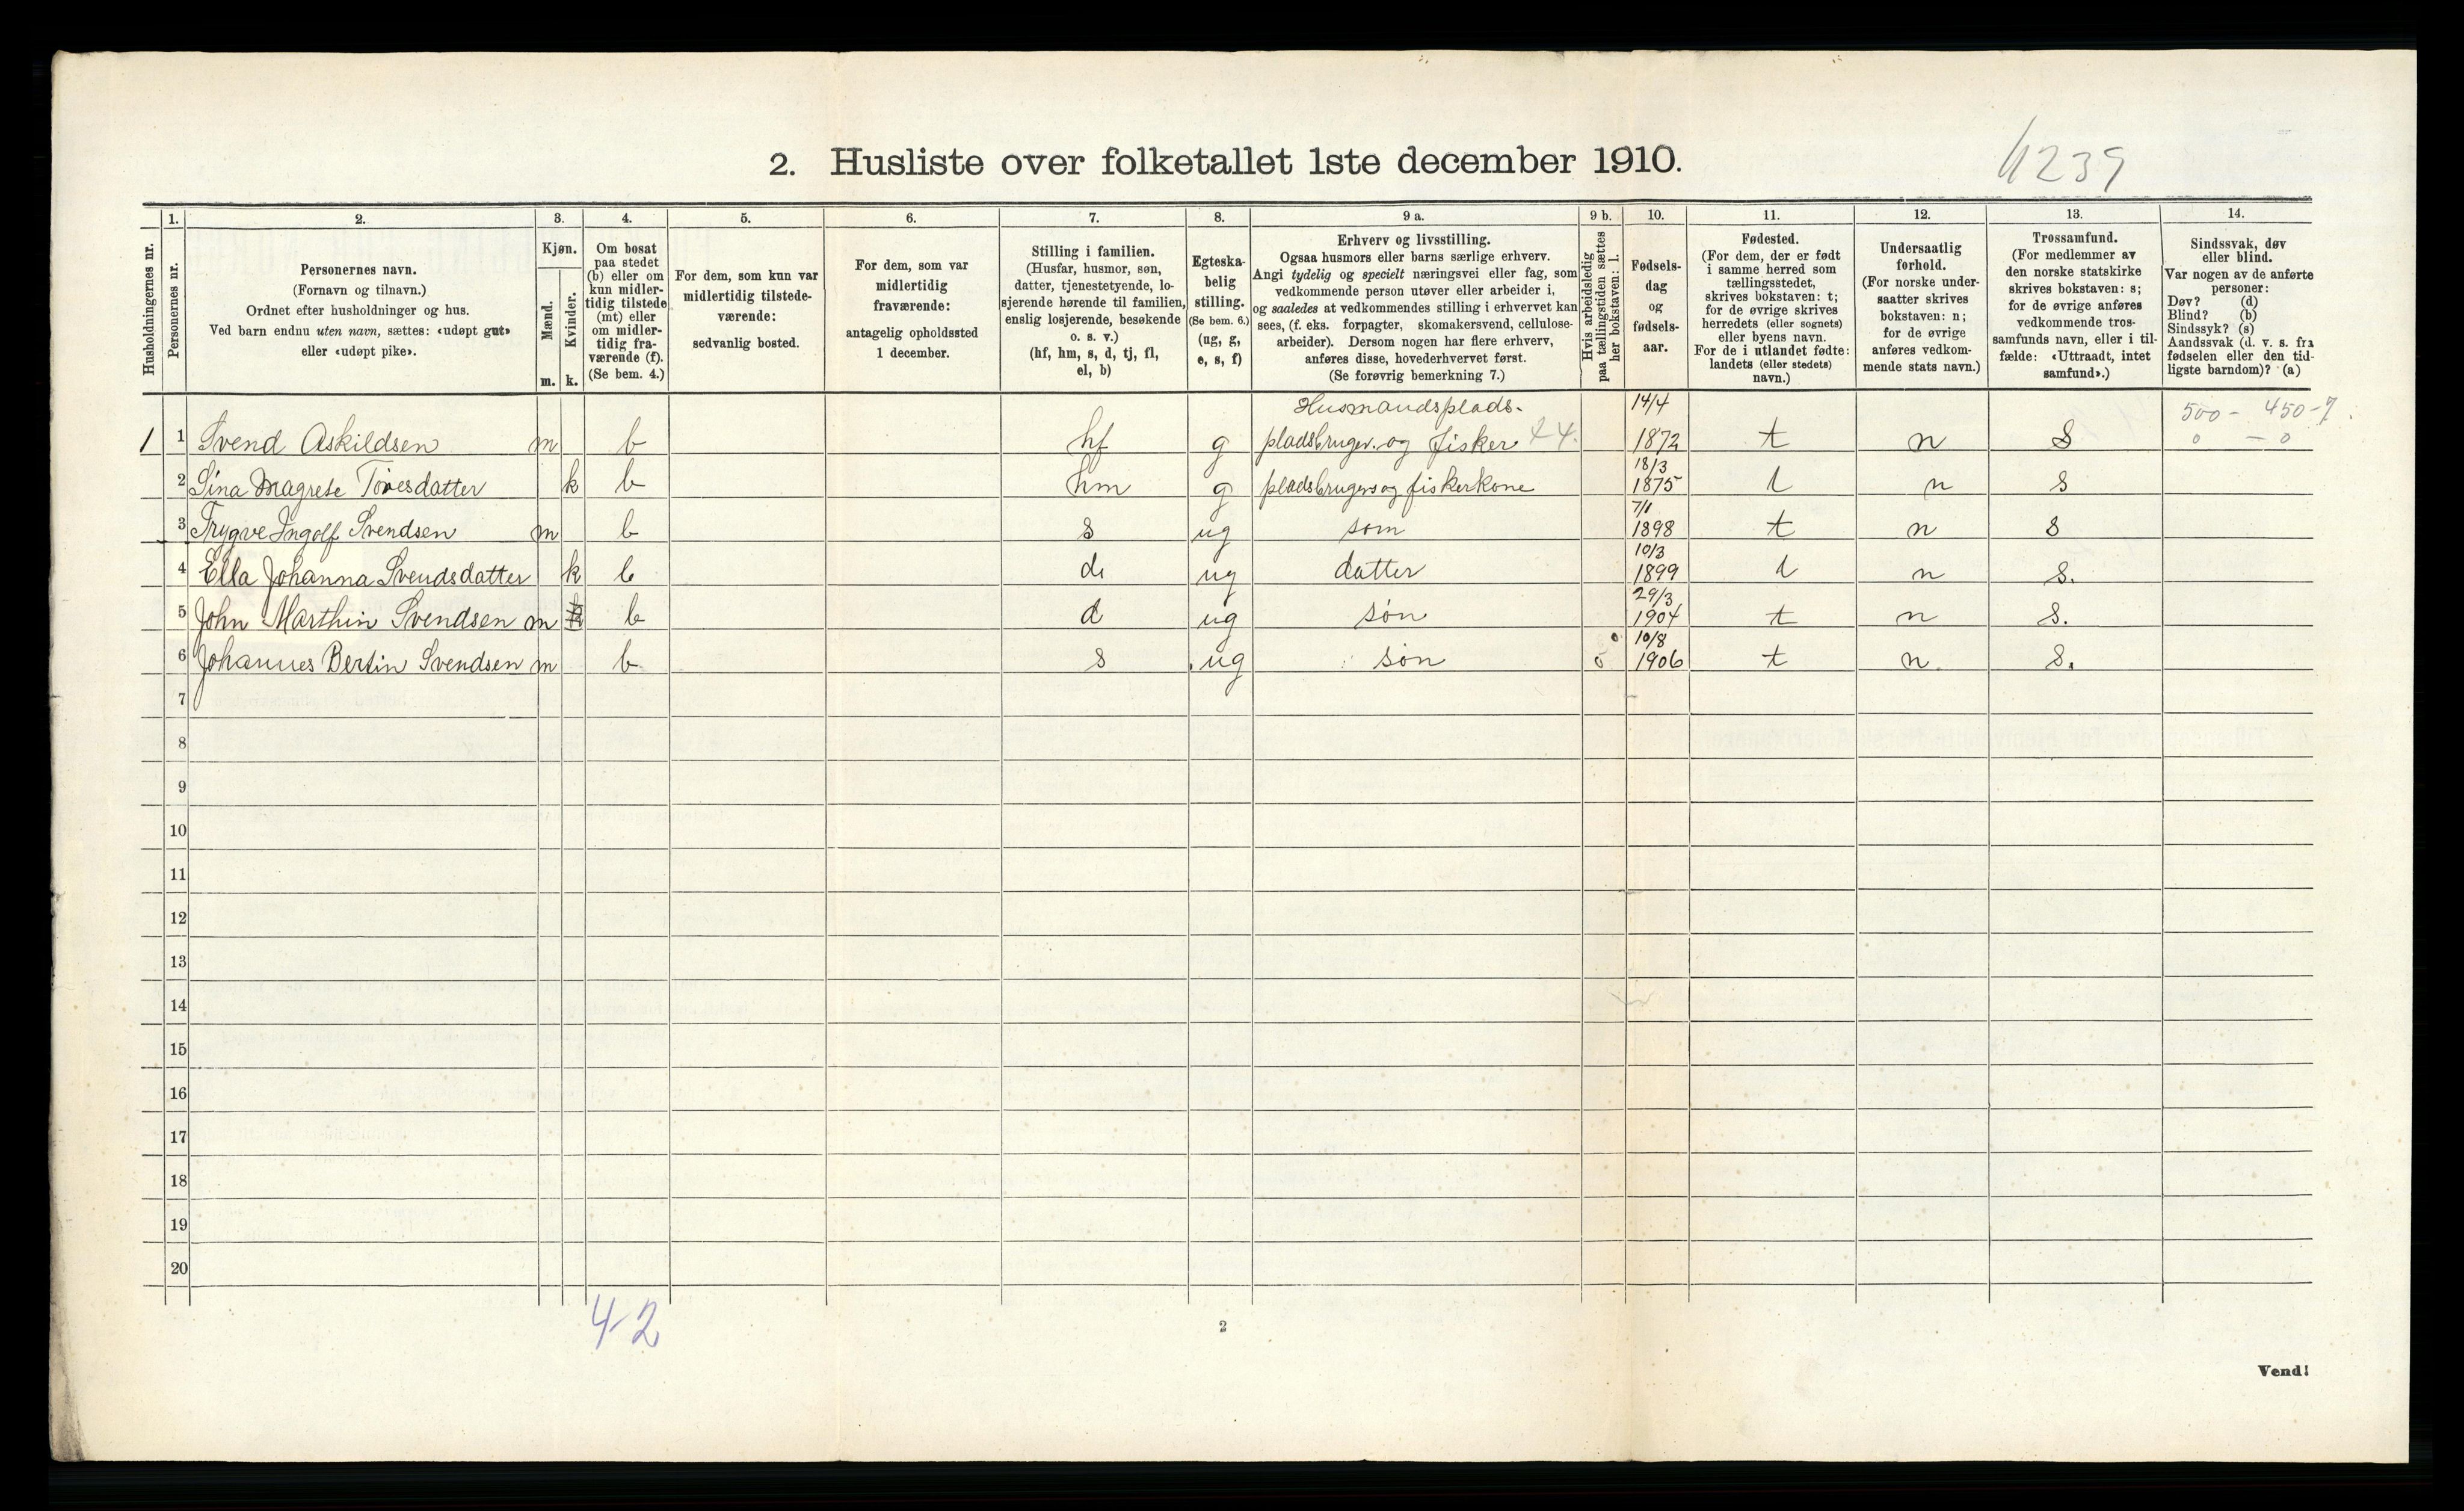 2. Husliste over folketallet 1ste december 1910.
4239
Husholdningernes nr.
1.
Personernes nr.
2.
Personernes navn.
(Fornavn og tilnavn.)
Ordnet efter husholdninger og hus.
Ved barn endnu uten navn, sættes: «udøpt gut»
eller «udøpt pike».
3.
Kjøn.
Mænd.
m.
Kvinder.
k.
4.
Om bosat
paa stedet
(b) eller om
kun midler-
tidig tilstede
(mt) eller
om midler-
tidig fra-
værende (f).
(Se bem. 4.)
5.
For dem, som kun var
midlertidig tilstede-
værende:
sedvanlig bosted.
6.
For dem, som var
midlertidig
fraværende:
antagelig opholdssted
1 december.
7.
Stilling i familien.
(Husfar, husmor, søn,
datter, tjenestetyende, lo-
sjerende hørende til familien,
enslig losjerende, besøkende
o. s. v.)
(hf, hm, s, d, tj, fl,
el, b)
8.
Egteska-
belig
stilling.
(Se bem. 6.)
(ug, g,
e, s, f)
9 a.
Erhverv og livsstilling.
Ogsaa husmors eller barns særlige erhverv.
Angi tydelig og specielt næringsvei eller fag, som
vedkommende person utøver eller arbeider i,
og saaledes at vedkommendes stilling i erhvervet kan
sees, (f. eks. forpagter, skomakersvend, cellulose-
arbeider). Dersom nogen har flere erhverv,
anføres disse, hovederhvervet først.
(Se forøvrig bemerkning 7.)
9 b.
Hvis arbeidsledig
paa tællingstiden sættes
her bokstaven: l.
10.
Fødsels-
dag
og
fødsels-
aar.
11.
Fødested.
(For dem, der er født
i samme herred som
tællingsstedet,
skrives bokstaven: t;
for de øvrige skrives
herredets (eller sognets)
eller byens navn.
For de i utlandet fødte:
landets (eller stedets)
navn.)
12.
Undersaatlig
forhold.
(For norske under-
saatter skrives
bokstaven: n;
for de øvrige
anføres vedkom-
mende stats navn.)
13.
Trossamfund.
(For medlemmer av
den norske statskirke
skrives bokstaven: s;
for de øvrige anføres
vedkommende tros-
samfunds navn, eller i til-
fælde: «Uttraadt, intet
samfund».)
14.
Sindssvak, døv
eller blind.
Var nogen av de anførte
personer:
Døv? (d)
Blind? (b)
Sindssyk? (s)
Aandssvak (d. v. s. fra
fødselen eller den tid-
ligste barndom)? (a)
Husmandsplads- 14/4 500 - 450-7
1 1 Svend Askildsen m b hf g pladsbruger. og fisker 1872 t n S 0 - 0
18/3
2 Sina Magrete Tovesdatter k b hm g pladsbrugers og fiskerkone 1875 t n s
7/1
3 Trygve Ingolf Svendsen m b s ug søn 1898 t n s
10/3
4 Ella Johanna Svendsdatter k b d ug datter 1899 t n s.
29/3
5 John Marthin Svendsen m b d ug søn 1904 t n s.
10/8
6 Johannes Bertin Svendsen m b s ug søn 0 1906 t n s.
7
8
9
10
11
12
13
14
15
16
17
18
19
20
4-2
2
Vend!